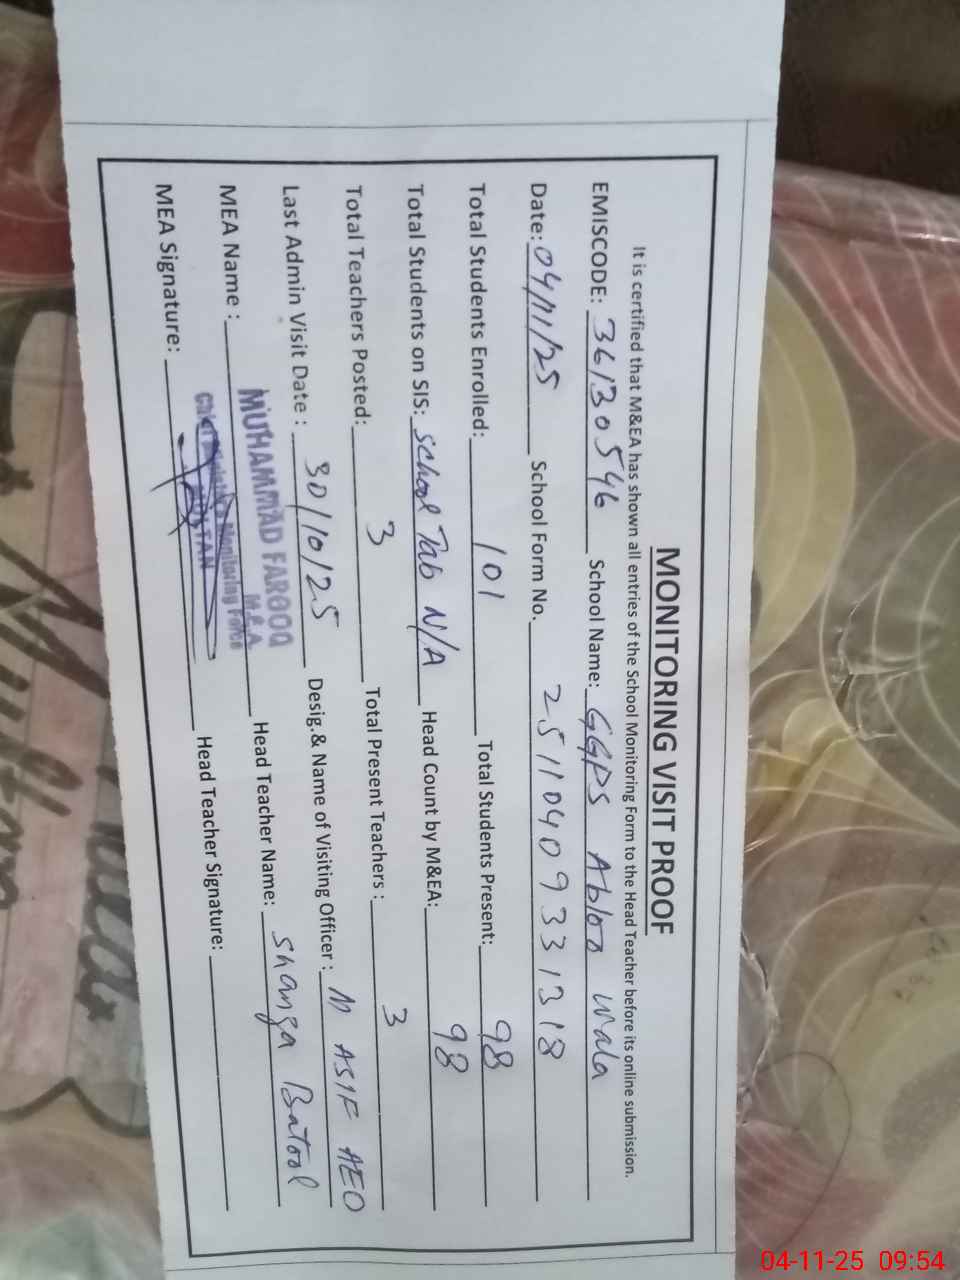 MONITORING VISIT PROOF
It is certified that M&EA has shown all entries of the School Monitoring Form to the Head Teacher before its online submission.
EMISCODE: 36130546 School Name: GGPS Abloo Wala
Date: 04/11/25 School Form No. 25110409331318
Total Students Enrolled: 101 Total Students Present: 98
Total Students on SIS: School Tab N/A Head Count by M&EA: 98
Total Teachers Posted: 3 Total Present Teachers : 3
Last Admin Visit Date : 30/10/25 Desig.& Name of Visiting Officer : M ASIF AEO
MEA Name : MUHAMMAD FAROOQ Head Teacher Name: Shanga Batool
M.E.A
Monitoring Force
MEA Signature: Head Teacher Signature:
04-11-25 09:54